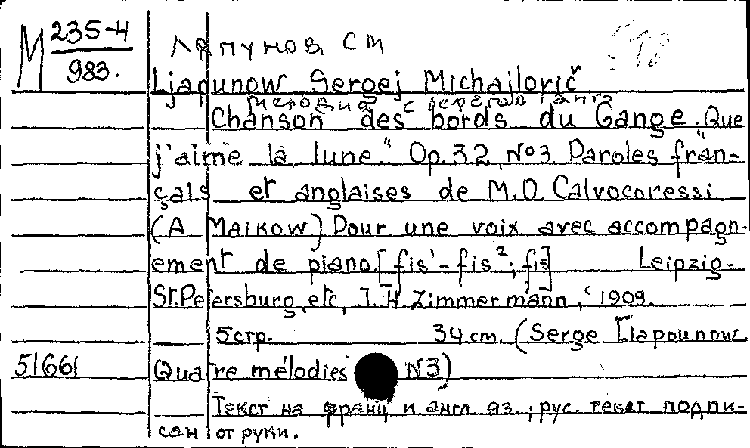 М 235-4
983.
Ляпунов СМ
Ljapunow Sergej Michajlovič
Мелодия с берегов Ганга
Chanson des bords du Gange. „Que
j'aime la lune." Op. 32 №3. Paroles fran-
çais et anglaises de M.D. Calvocoressi
(A Maikow) Pour une voix avec accompagn-
ement de piano. [fis¹-fis²; fis] Leipzig-
St.Petersburg, etc, J.H. Zimmermann, 1909.
5стр. 34 cm. (Serge Liapounow
51661 Quatre mélodies N3)
Текст на франц и англ яз.; рус. текст подпи-
сан от руки.